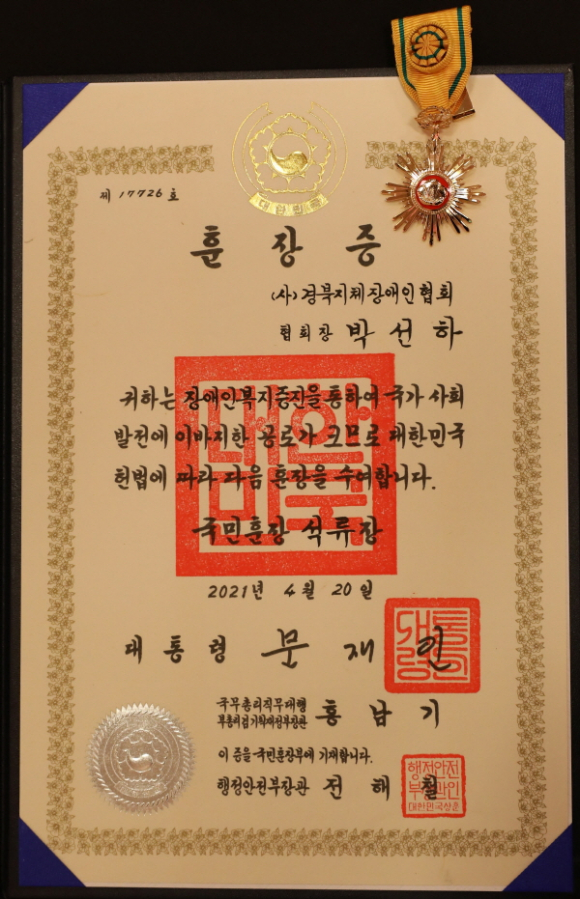 대한민국
제 17726 호
훈장증
(사)경북지체장애인협회
협회장 박선하
귀하는 장애인복지증진을 통하여 국가 사회
발전에 이바지한 공로가 크므로 대한민국
헌법에 따라 다음 훈장을 수여합니다.
대한민국
국민훈장 석류장
2021년 4월 20일
대통령 문재인
대통령인
국무총리직무대행
부총리겸기획재정부장관 홍남기
이 증을 국민훈장부에 기재합니다.
행정안전부장관 전해철
행정안전
부장관인
대한민국상훈